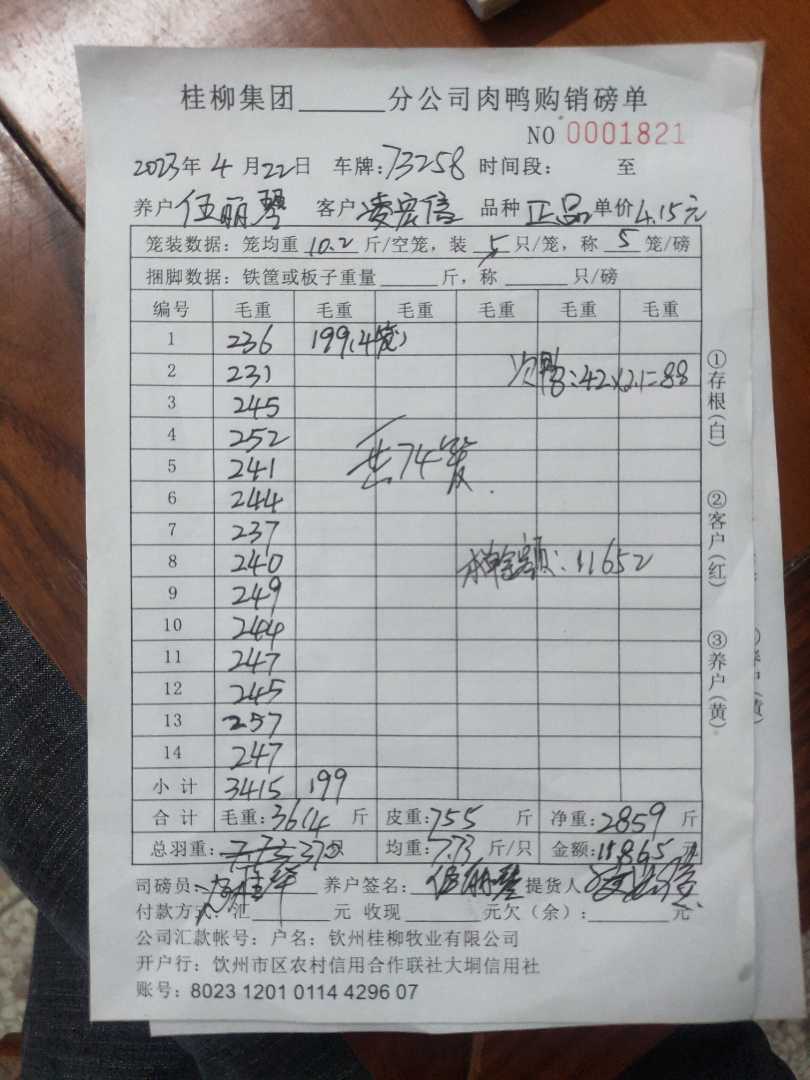 桂柳集团______分公司肉鸭购销磅单
NO 0001821
2023年 4 月 22日 车牌:73258 时间段: 至
养户 伍丽琴 客户 凌宏信 品种 正品 单价 4.15元
笼装数据: 笼均重 10.2 斤/空笼, 装 5 只/笼, 称 5 笼/磅
捆脚数据: 铁筐或板子重量______斤, 称______只/磅
编号 毛重 毛重 毛重 毛重 毛重 毛重
1 236 199(4笼)
2 231 次鸭:42×2.1=88
3 245
4 252 共74笼
5 241
6 244
7 237
8 240 磅单金额:11652
9 249
10 244
11 247
12 245
13 257
14 247
小 计 3415 199
合 计 毛重:3614 斤 皮重:755 斤 净重:2859 斤
总羽重: 370 均重:7.73 斤/只 金额:11865元
司磅员: 养户签名: 伍丽琴 提货人 凌宏信
付款方式: 汇______元 收现______元欠(余):______元
公司汇款帐号: 户名: 钦州桂柳牧业有限公司
开户行: 饮州市区农村信用合作联社大垌信用社
账号: 8023 1201 0114 4296 07
①存根(白)
②客户(红)
③养户(黄)